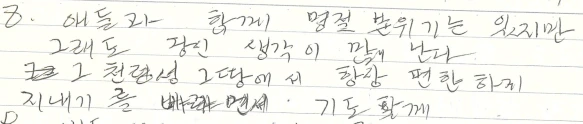 8. 애들과 함께 명절 분위기는 있지만
그래도 장인 생각이 많이 난다
그 천국성 그땅에서 항상 편한하지
지내기를 바라면서. 기도 할게